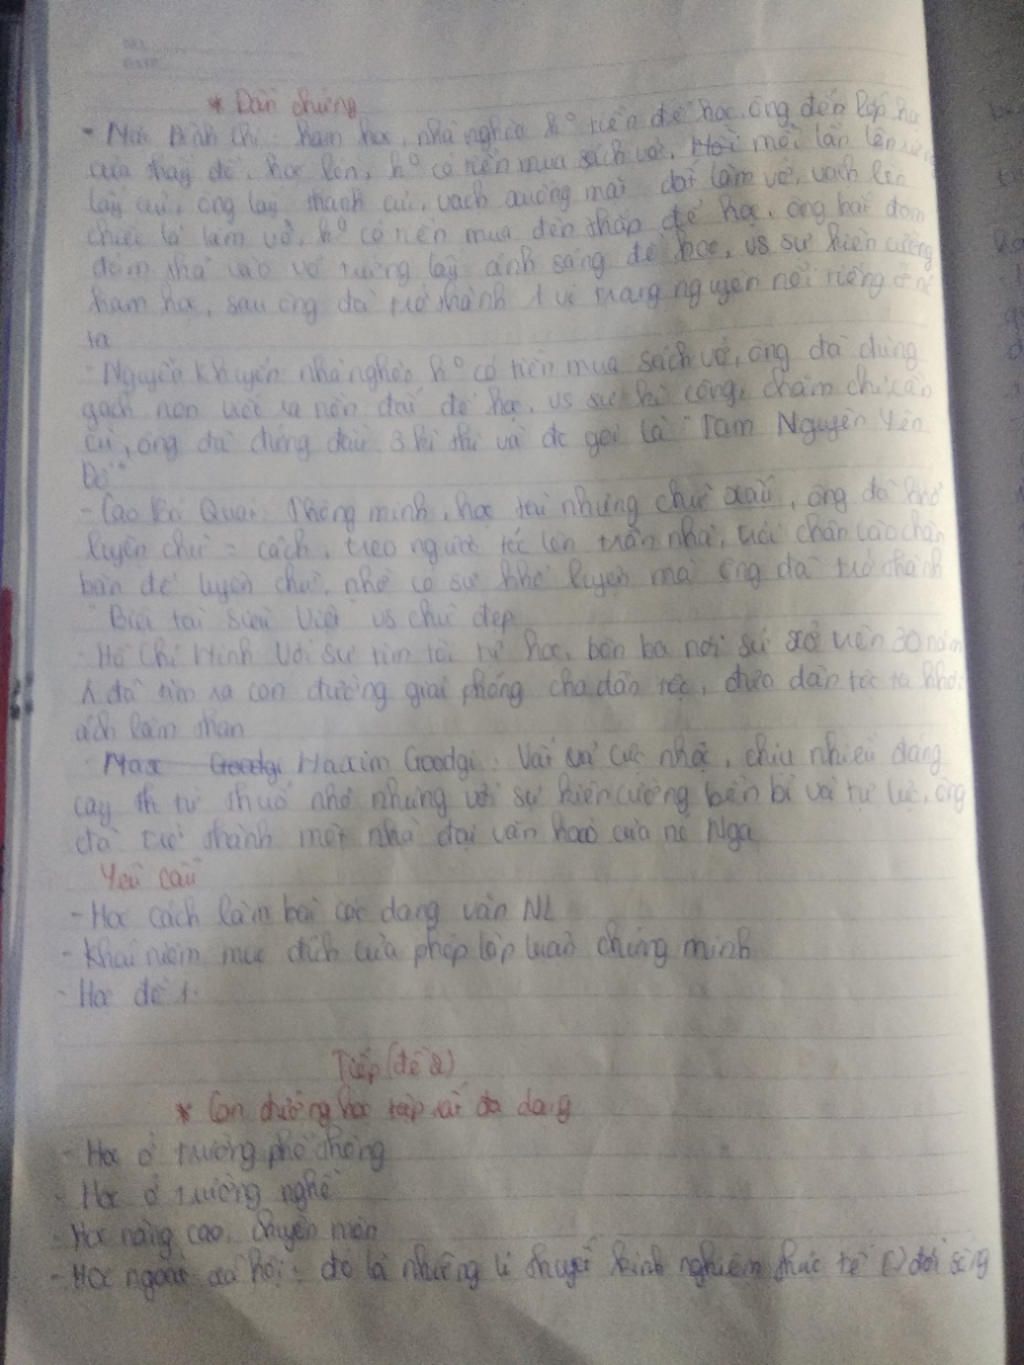 * Dẫn chứng
- Mạc Đĩnh Chi: ham học, nhà nghèo k° tiền để học, ông đến lớp
của thầy để học lén, k° có tiền mua sách vở, mỗi lần lên
lấy củi, ông lấy thanh củi, vạch xuống mặt đất làm vở, vạch lên
chiếc lá làm vở, k° có tiền mua đèn thắp để học, ông bắt đom
đóm thả vào vỏ trứng lấy ánh sáng để học, vs sự kiên cường
ham học, sau ông đã trở thành 1 vị trạng nguyên nổi tiếng ở
ta
- Nguyễn Khuyến nhà nghèo k° có tiền mua sách vở, ông đã dùng
gạch non viết ra nền đất để học, vs sự kì công, chăm chỉ, cần
cù, ông đã đứng đầu 3 kì thi và đc gọi là "Tam Nguyên Yên
Đổ"
- Cao Bá Quát: Thông minh, học tài nhưng chữ xấu, ông đã khổ
luyện chữ = cách, treo ngược tóc lên trần nhà, chân vào chân
bàn để luyện chữ, nhờ có sự khổ luyện mà ông đã trở thành
"Bút tài Siêu Việt" vs chữ đẹp
- Hồ Chí Minh Với sự tìm tòi tự học, bôn ba nơi sứ xở trên 30 năm
đã tìm ra con đường giải phóng cho dân tộc, đưa dân tộc ta khỏi
ách lầm than
- Max Goodgi Maxim Goodgi: Vất vả cực nhọc, chịu nhiều đắng
cay từ thuở nhỏ nhưng với sự kiên cường bền bỉ và tự lực, ông
đã trở thành một nhà đại văn hào của nc Nga
Yêu cầu
- Học cách làm bài các dạng văn NL
- Khái niệm mục đích của phép lập luận chứng minh
- Học đề 1.
Tiếp (đề 2)
* Con đường học tập rất đa dạng
- Học ở trường phổ thông
- Học ở trường nghề
- Học nâng cao, chuyên môn
- Học ngoài xã hội: đó là những lí thuyết kinh nghiệm thực tế đời sống